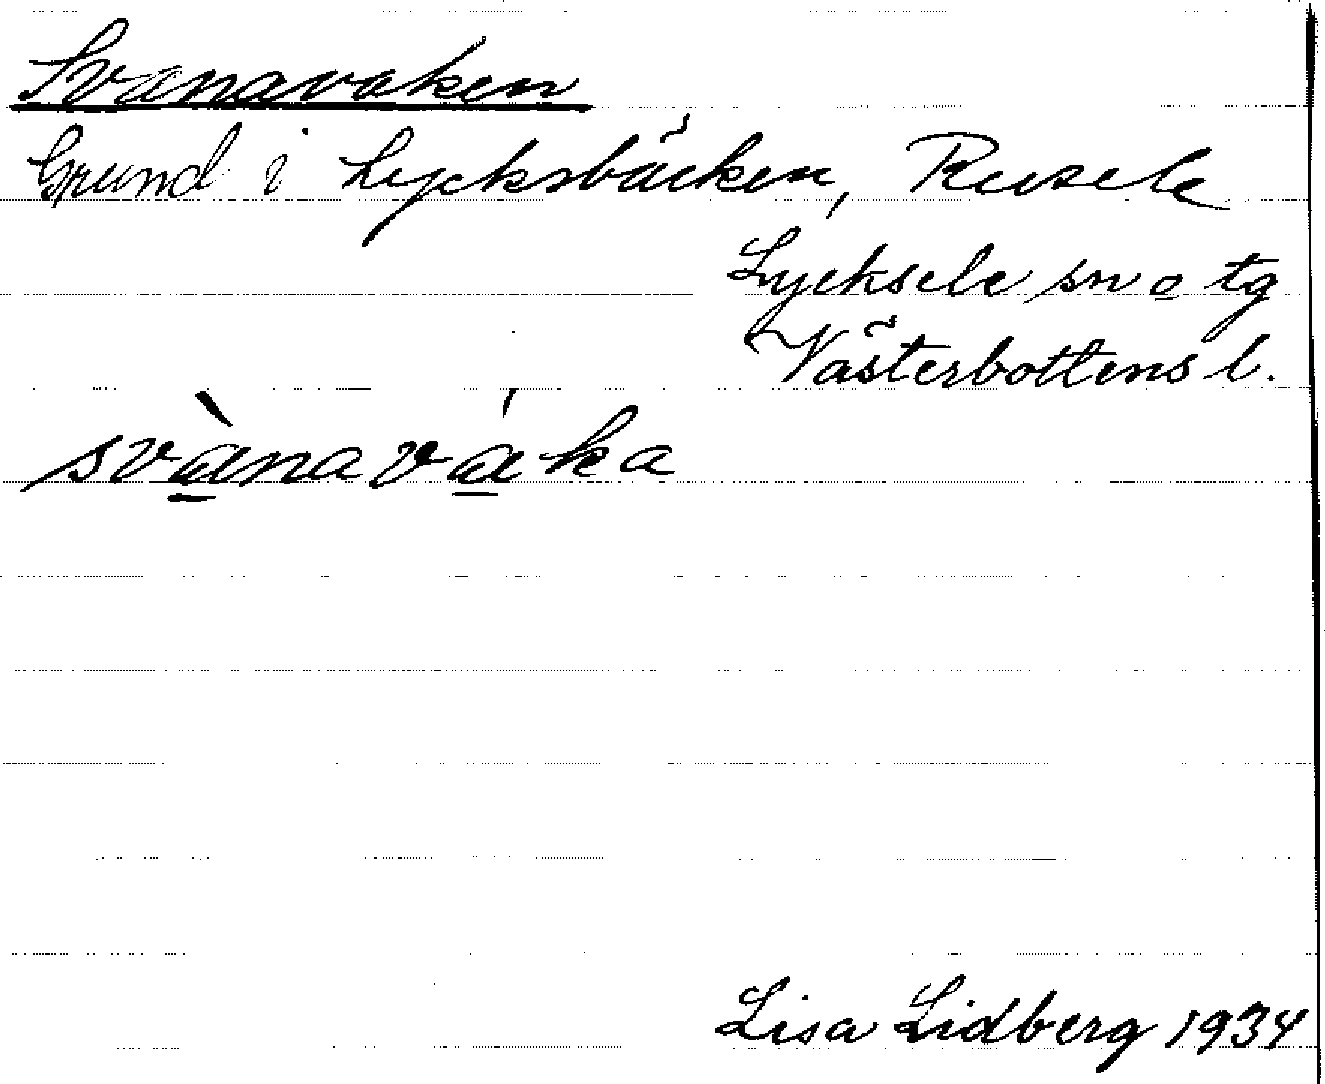 Svanavaken
Grund i Lycksbäcken, Rusele
Lycksele sn o tg
Västerbottens l.
svànaváka
Lisa Lidberg 1934